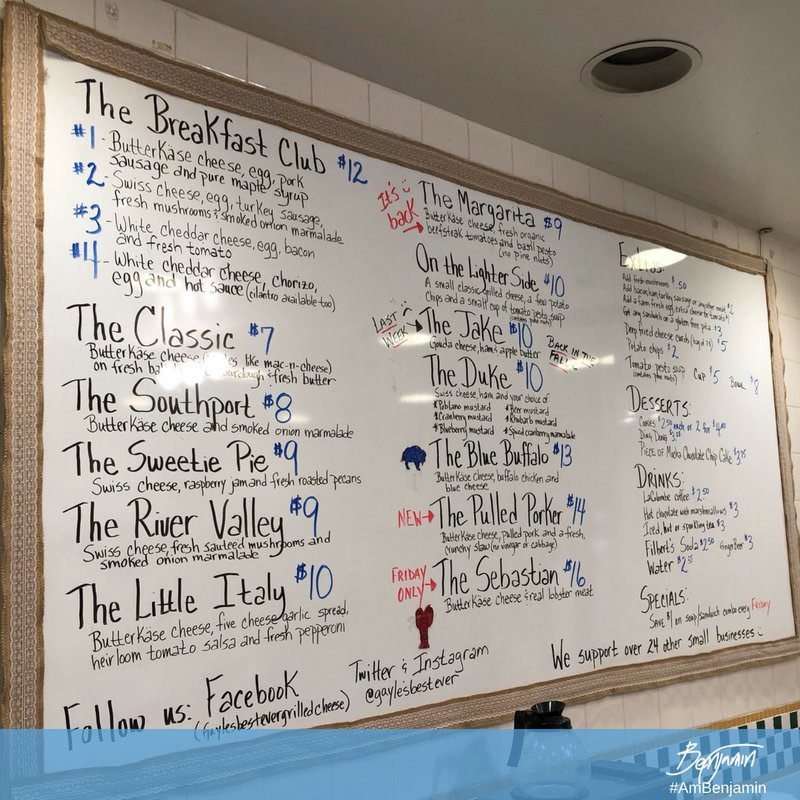 The Breakfast Club $12
#1 - ButterKäse cheese, egg, pork
sausage and pure maple syrup
#2 - Swiss cheese, egg, turkey sausage,
fresh mushrooms & smoked onion marmalade
#3 - White cheddar cheese, egg, bacon
and fresh tomato
#4 - White cheddar cheese, chorizo,
egg and hot sauce (cilantro available too)
The Classic $7
ButterKäse cheese like mac-n-cheese)
on fresh sourdough & fresh butter
The Southport $8
ButterKäse cheese and smoked onion marmalade
The Sweetie Pie $9
Swiss cheese, raspberry jam and fresh roasted pecans
The River Valley $9
Swiss cheese, fresh sauteed mushrooms and
smoked onion marmalade
The Little Italy $10
ButterKäse cheese, five cheese garlic spread,
heirloom tomato salsa and fresh pepperoni
Follow us: Facebook
(Gaylesbestevergrilledcheese)
It's back
The Margarita $9
ButterKäse cheese, fresh organic
beefsteak tomatoes and basil pesto
(no pine nuts)
On the Lighter Side $10
A small classic grilled cheese, a few potato
chips and a small cup of tomato pesto soup
(contains pine nuts)
LAST WEEK
The Jake $10
Gouda cheese, ham & apple butter
BACK IN THE FALL
The Duke $10
Swiss cheese, ham, and your choice of
* Poblano mustard * Beer mustard
* Cranberry mustard * Rhubarb mustard
* Blueberry mustard * Spiced cranberry marmalade
The Blue Buffalo $13
ButterKäse cheese, buffalo chicken and
blue cheese
NEW
The Pulled Porker $14
ButterKäse cheese, pulled pork and a fresh,
crunchy slaw (no vinegar or cabbage)
FRIDAY ONLY
The Sebastian $16
ButterKäse cheese & real lobster meat
Twitter & Instagram
@gaylesbestever
Extras:
Add fresh mushrooms $.50
Add bacon, ham, turkey sausage or any other meat $2
Add a farm fresh egg, extra cheese or tomato $1
Get any sandwich on a gluten free pita $3
Deep fried cheese curds $5
Potato chips $2
Tomato pesto soup Cup $5 Bowl $8
(contains pine nuts)
DESSERTS:
Cookies $2.50 each or 2 for $4.00
Ding Dong
PIECE OF Mocha Chocolate Chip Cake $3.75
DRINKS:
LaColombe coffee $2.50
Hot chocolate with marshmallows $3
Iced, hot or sparkling tea $3
Filbert's Soda $2.50 Ginger Beer $3
Water
SPECIALS:
SAVE $1 on soup/sandwich combo every FRIDAY
We support over 24 other small businesses
Benjamin
#AmBenjamin